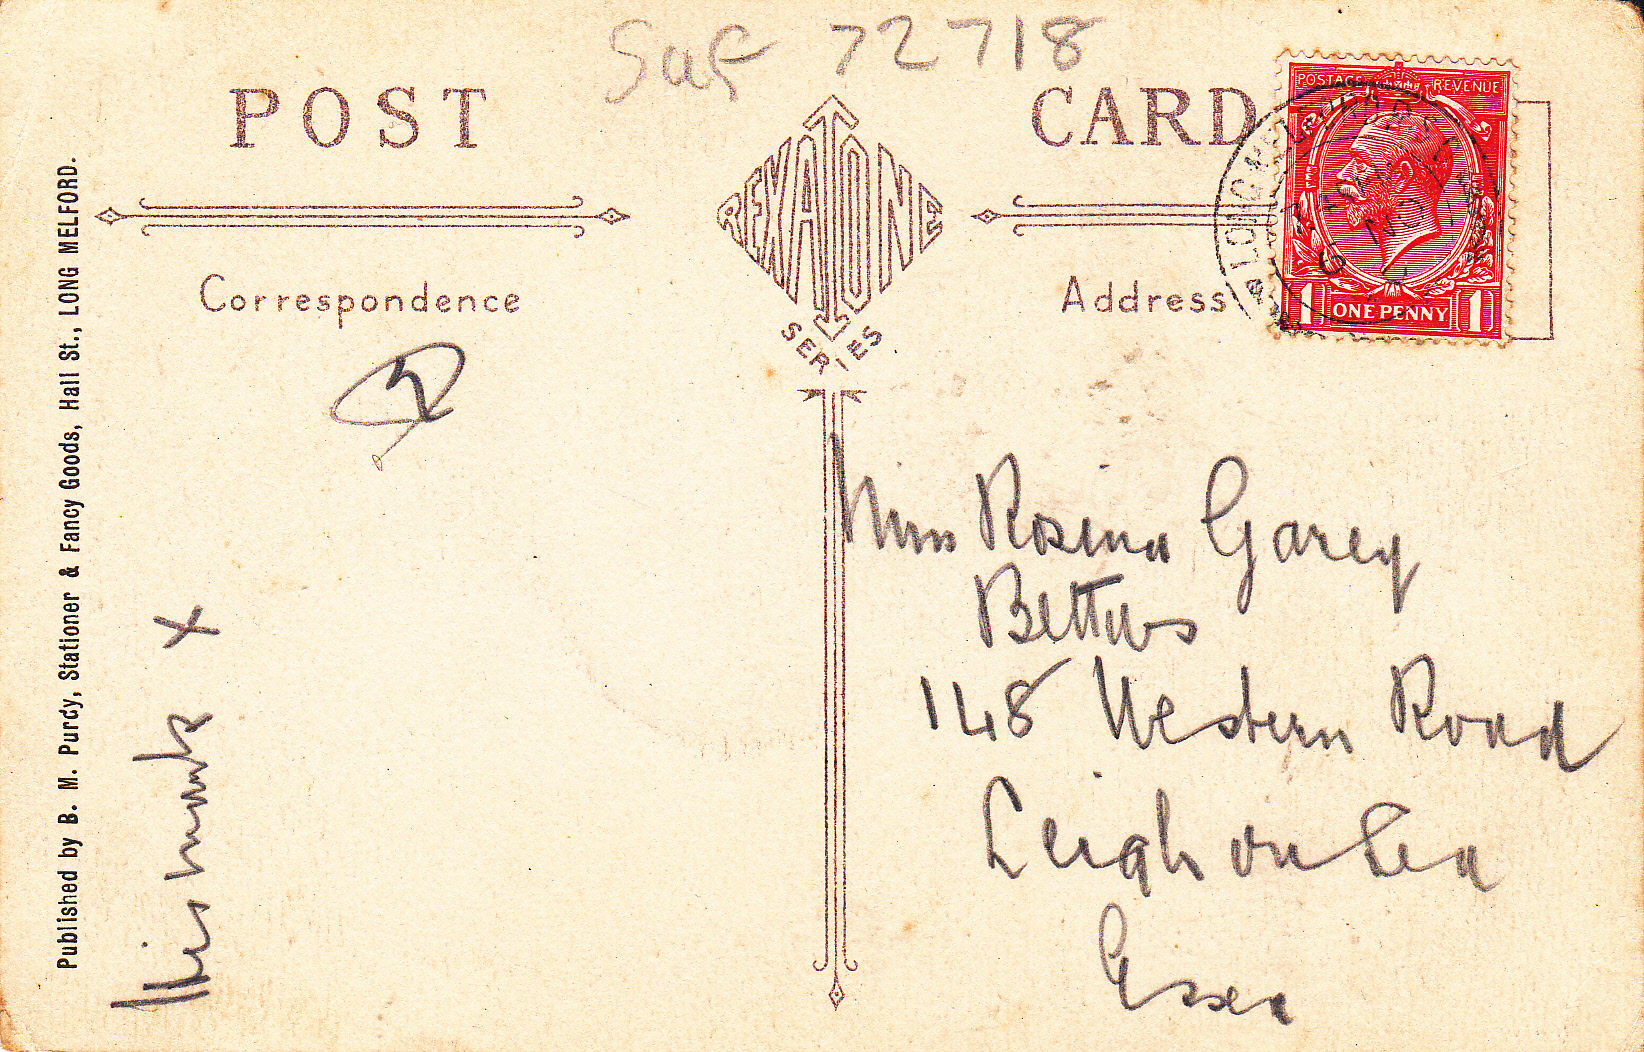 Suf 72718
POST CARD
REXATONE
SERIES
Correspondence
Address
POSTAGE REVENUE
ONE PENNY
1 1
LONG MELFORD
Published by B. M. Purdy, Stationer & Fancy Goods, Hall St., LONG MELFORD.
X
Miss Rosina Garey
148 Western Road
Leigh on Sea
Essex